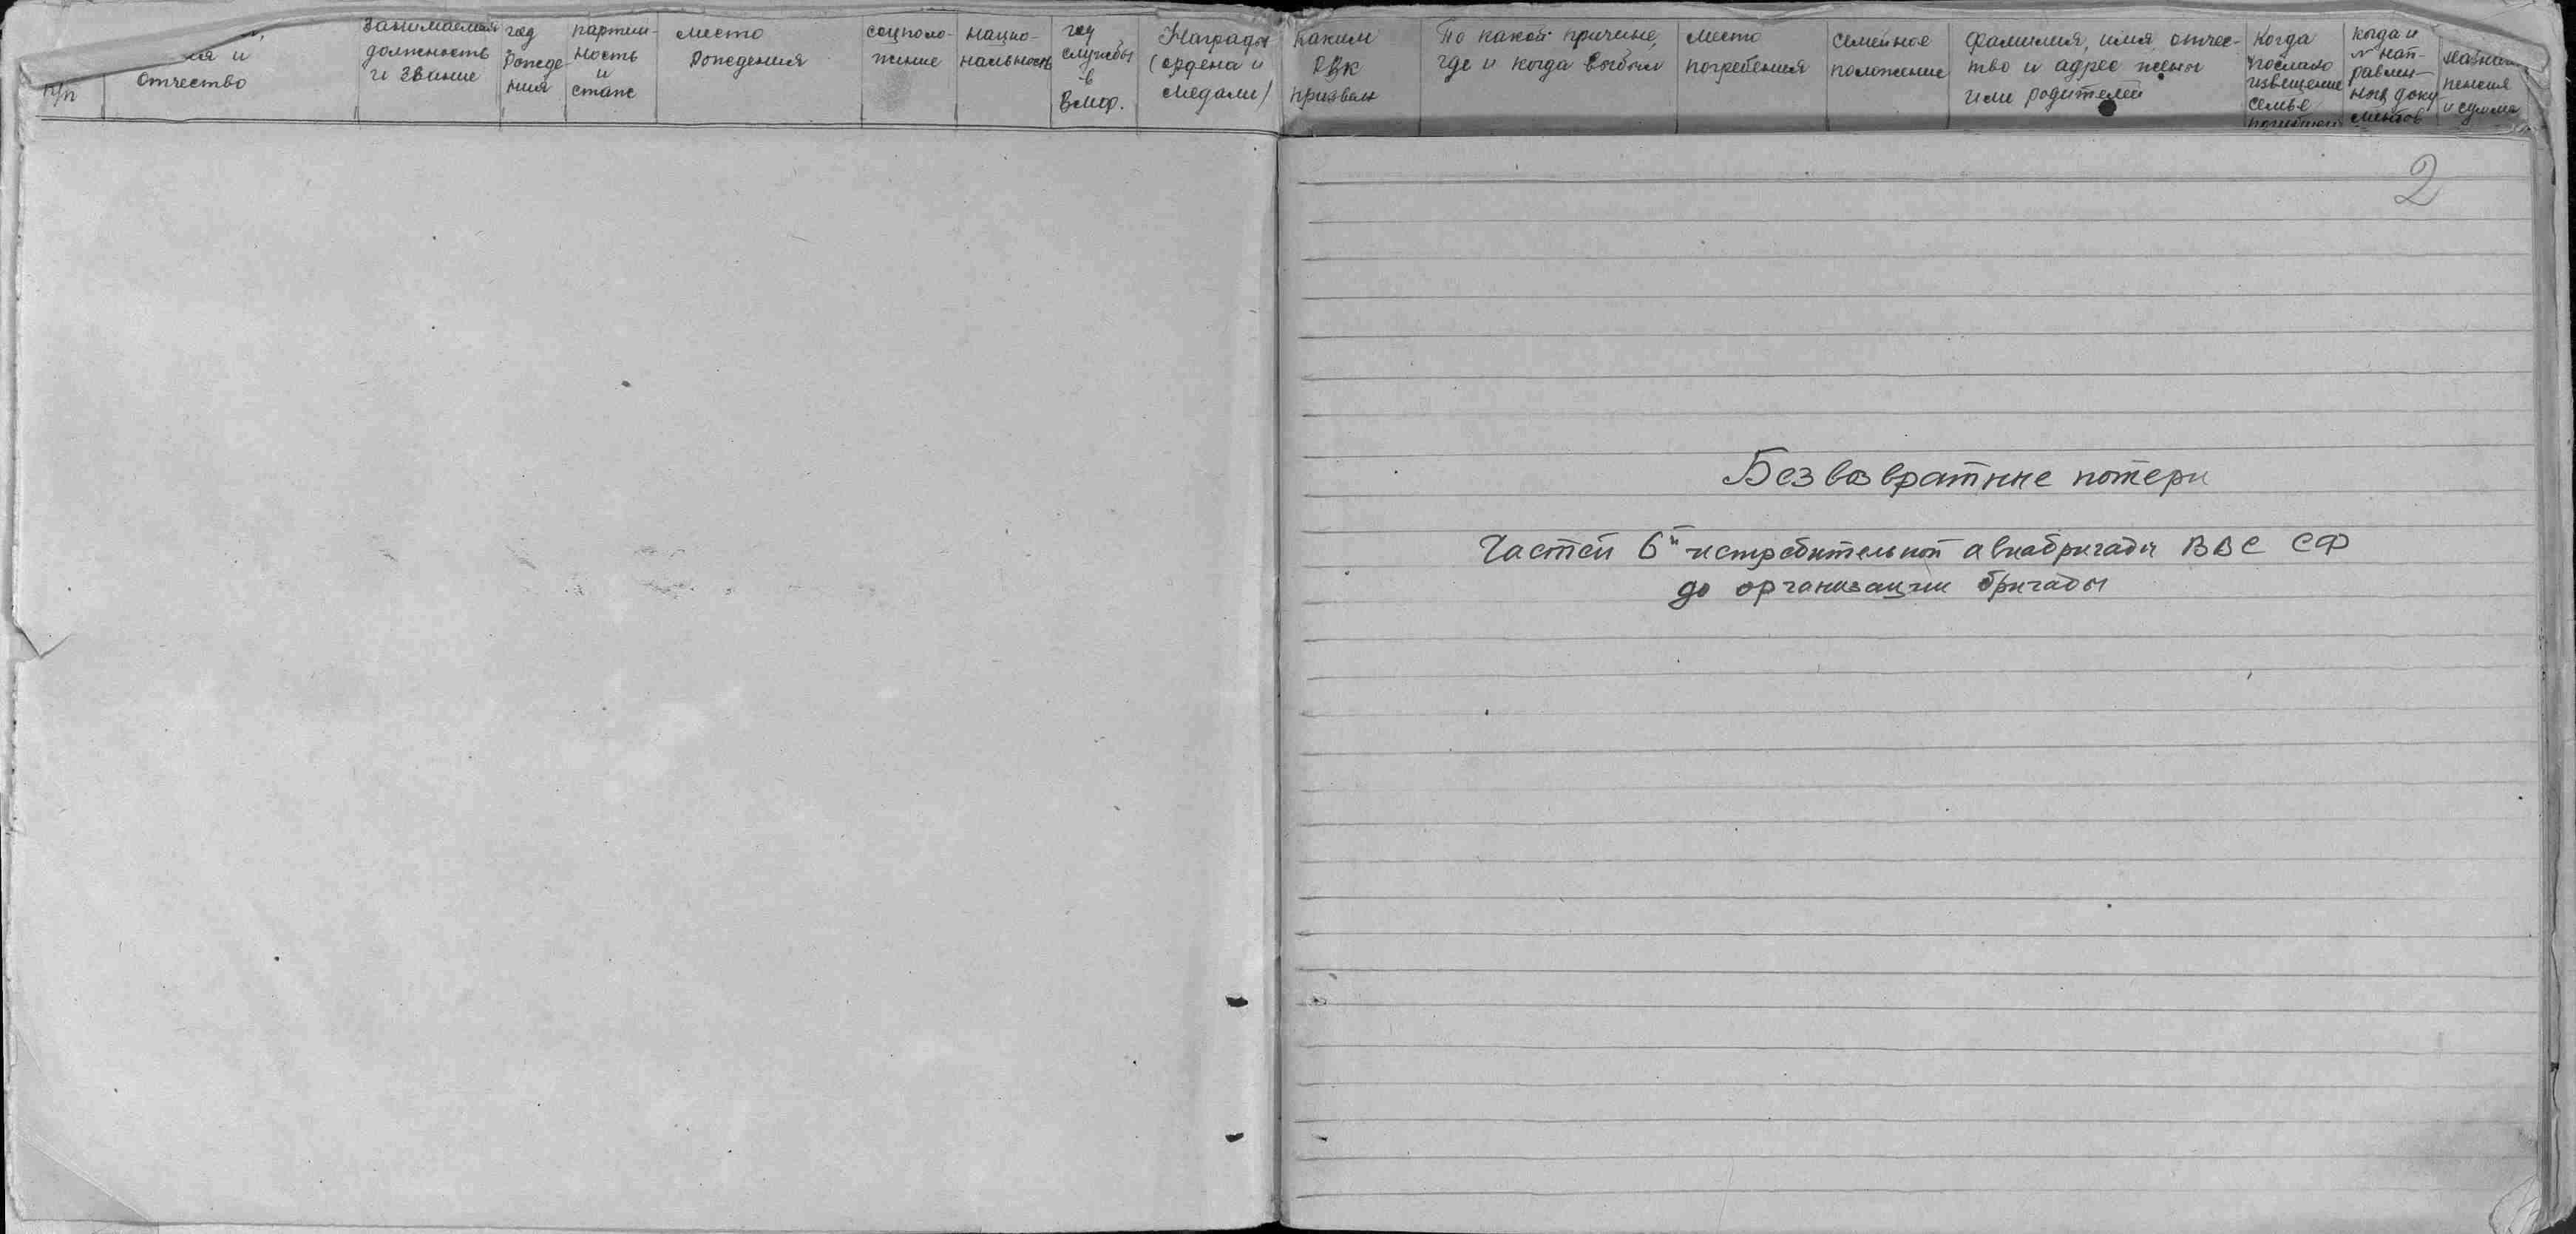 п/п
ия и
отчество
Занимаемая
должность
и звание
год
рожде-
ния
партий-
ность
и
стаж
место
рождения
соцполо-
жение
нацио-
нальность
год
службы
в
ВМФ.
Награды
(ордена и
медали)
Каким
РВК
призван
По какой причине,
где и когда выбыл
место
погребения
семейное
положение
фамилия, имя, отчес-
тво и адрес жены
или родителей
Когда
послано
извещение
семье
когда и
№ нап-
равлен-
ных доку-
ментов
пенсия
и сумма
2
Безвозвратные потери
Частей 6й истребительной авиабригады ВВС СФ
до организации бригады